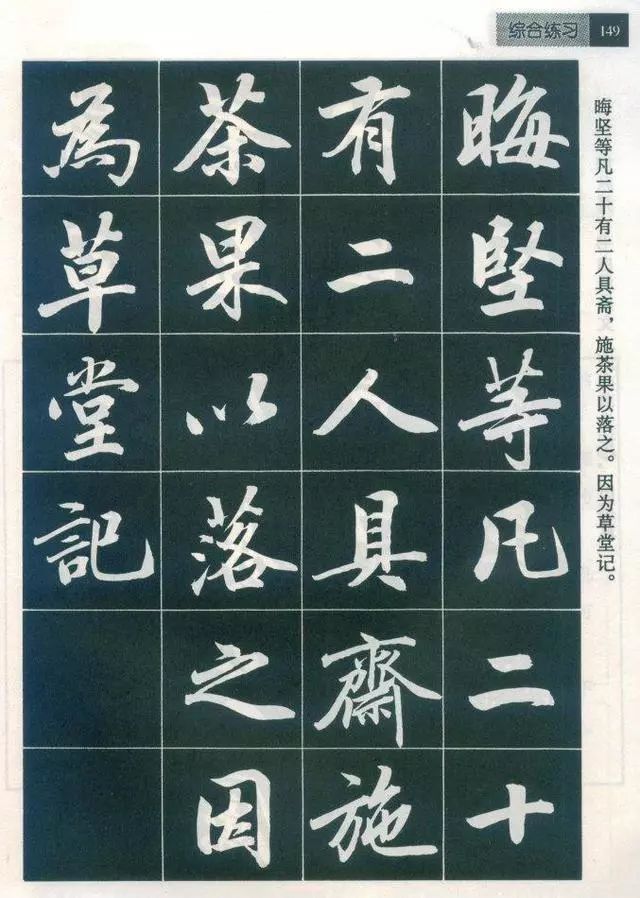 综合练习 149
晦堅等凡二十
有二人具齋施
茶果以落之因
為草堂記
晦坚等凡二十有二人具斋，施茶果以落之。因为草堂记。